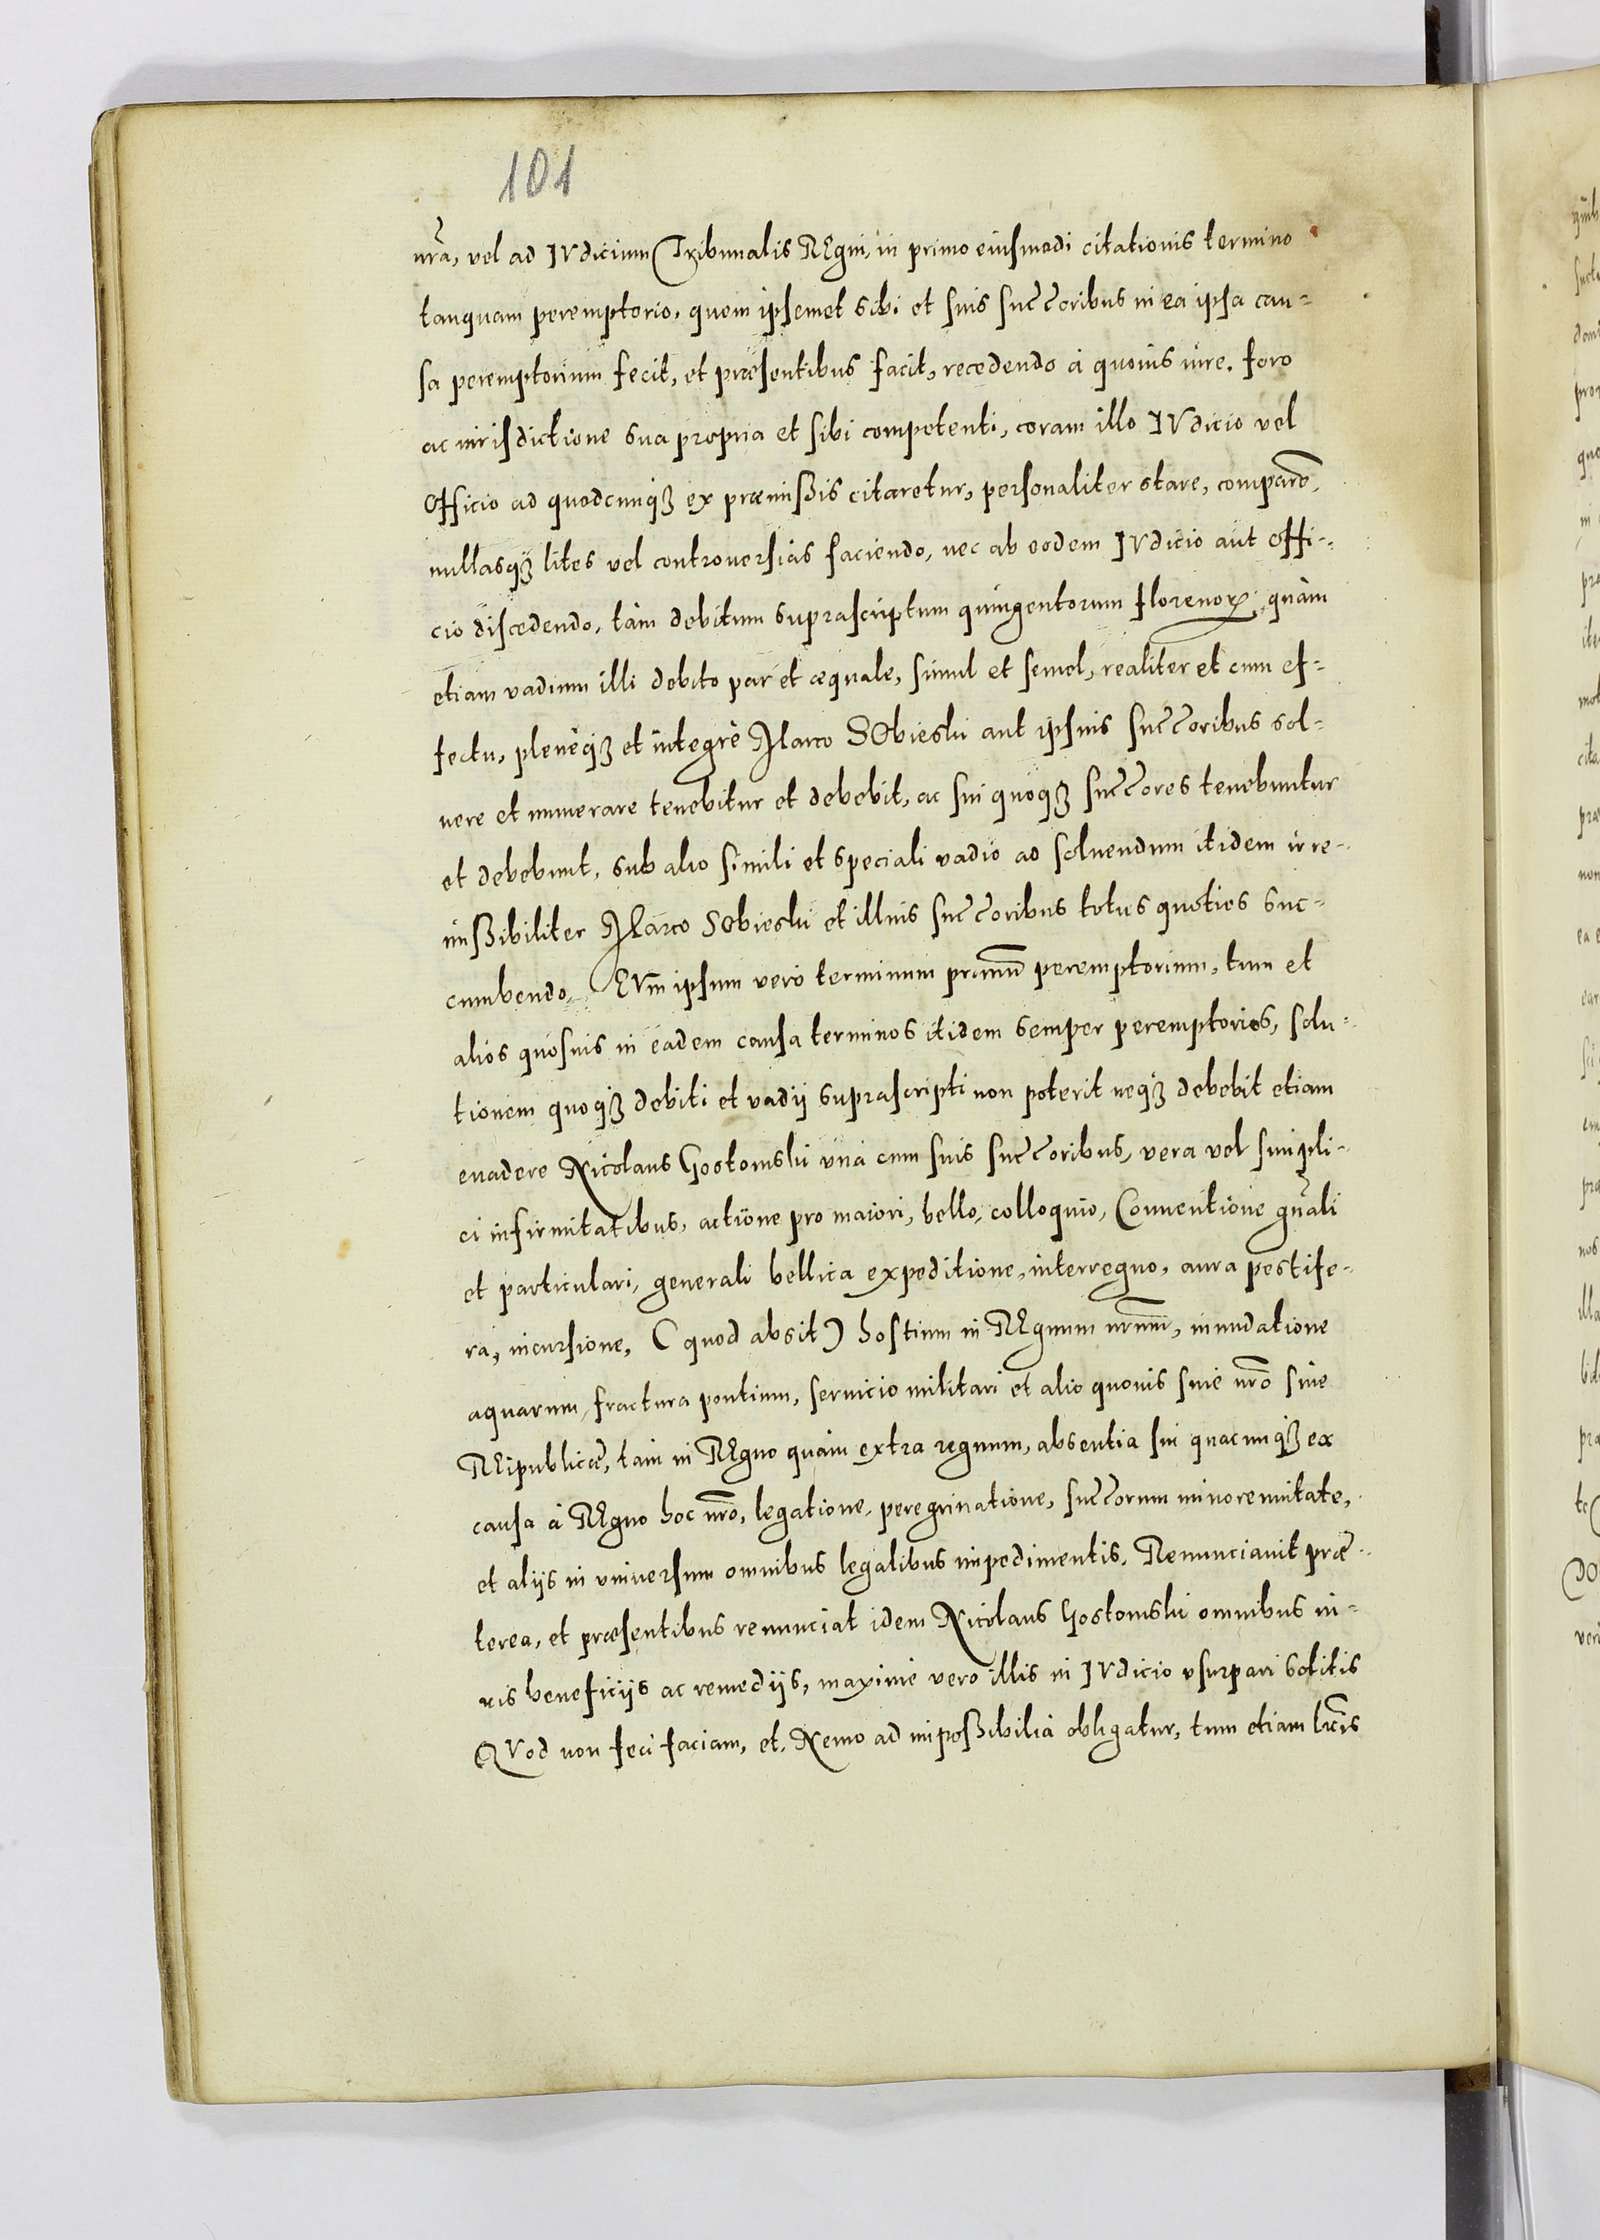 101
nr̃a, vel ad IVdicium Tribunalis REgni, in primo eiusmodi citationis termino
tanquam peremptorio, quem ipsemet sibi et suis succ̃oribus in ea ipsa cau-
sa peremptorium fecit, et præsentibus facit, recedendo à quouis iure, foro
ac iurisdictione sua propria et sibi competenti, coram illo IVdicio vel
Officio ad quodcunqꝫ ex præmißis citaretur, personaliter stare, comparẽ,
nullasqꝫ lites vel controuersias faciendo, nec ab eodem IVdicio aut Offi-
cio discedendo, tàm debitum suprascriptum quingentorum florenoꝝ, quàm
etiam vadium illi debito par et æquale, simul et semel, realiter et cum ef-
fectu, plenèqꝫ et integrè Marco SObieski aut ipsius succ̃oribus sol-
uere et numerare tenebitur et debebit, ac sui quoqꝫ succ̃ores tenebuntur
et debebunt, sub alio simili et speciali vadio ad soluendum itidem irre-
mißibiliter Marco SObieski et illius succ̃oribus toties quoties suc-
cumbendo. EVm ipsum verò terminum primũ peremptorium, tum et
alios quosuis in eadem causa terminos itidem semper peremptorios, solu-
tionem quoqꝫ debiti et vadij suprascripti non poterit neqꝫ debebit etiam
euadere Nicolaus Gostomski vnà cum suis succ̃oribus, vera vel simpli-
ci infirmitatibus, actione pro maiori, bello, colloquio, Conuentione gñali
et particulari, generali bellica expeditione, interregno, aura pestife-
ra, incursione, (quod absit) hostium in REgnum nr̃um, inundatione
aquarum, fractura pontium, seruicio militari et alio quouis siue nr̃o siue
REipublicæ, tàm in REgno quàm extra regnum, absentia sui quacunqꝫ ex
causa à REgno hoc nr̃o, legatione, peregrinatione, succ̃orum minorennitate,
et alijs in vniuersum omnibus legalibus impedimentis. Renunciauit præ-
terea, et præsentibus renunciat idem Nicolaus Gostomski omnibus iu-
ris beneficijs ac remedijs, maximè vero illis in IVdicio vsurpari solitis
QVod non feci faciam, et, Nemo ad impoßibilia obligatur, tum etiam lr̃is